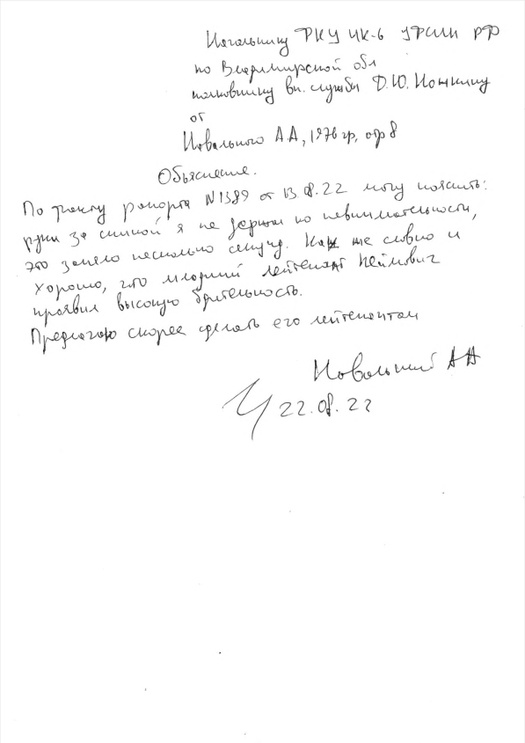 Начальнику ФКУ ИК-6 УФСИН РФ
по Владимирской обл
полковнику вн. службы Д.Ю. Ножкину
от
Навального А А, 1976 гр, отр 8
Объяснение.
По факту рапорта N1389 от 13.08.22 могу пояснить:
руки за спиной я не держал по невнимательности,
это заняло несколько секунд. Как же славно и
хорошо, что младший лейтенант Неймович
проявил высокую бдительность.
Предлагаю скорее сделать его лейтенантом
Навальный А А
22.08.22